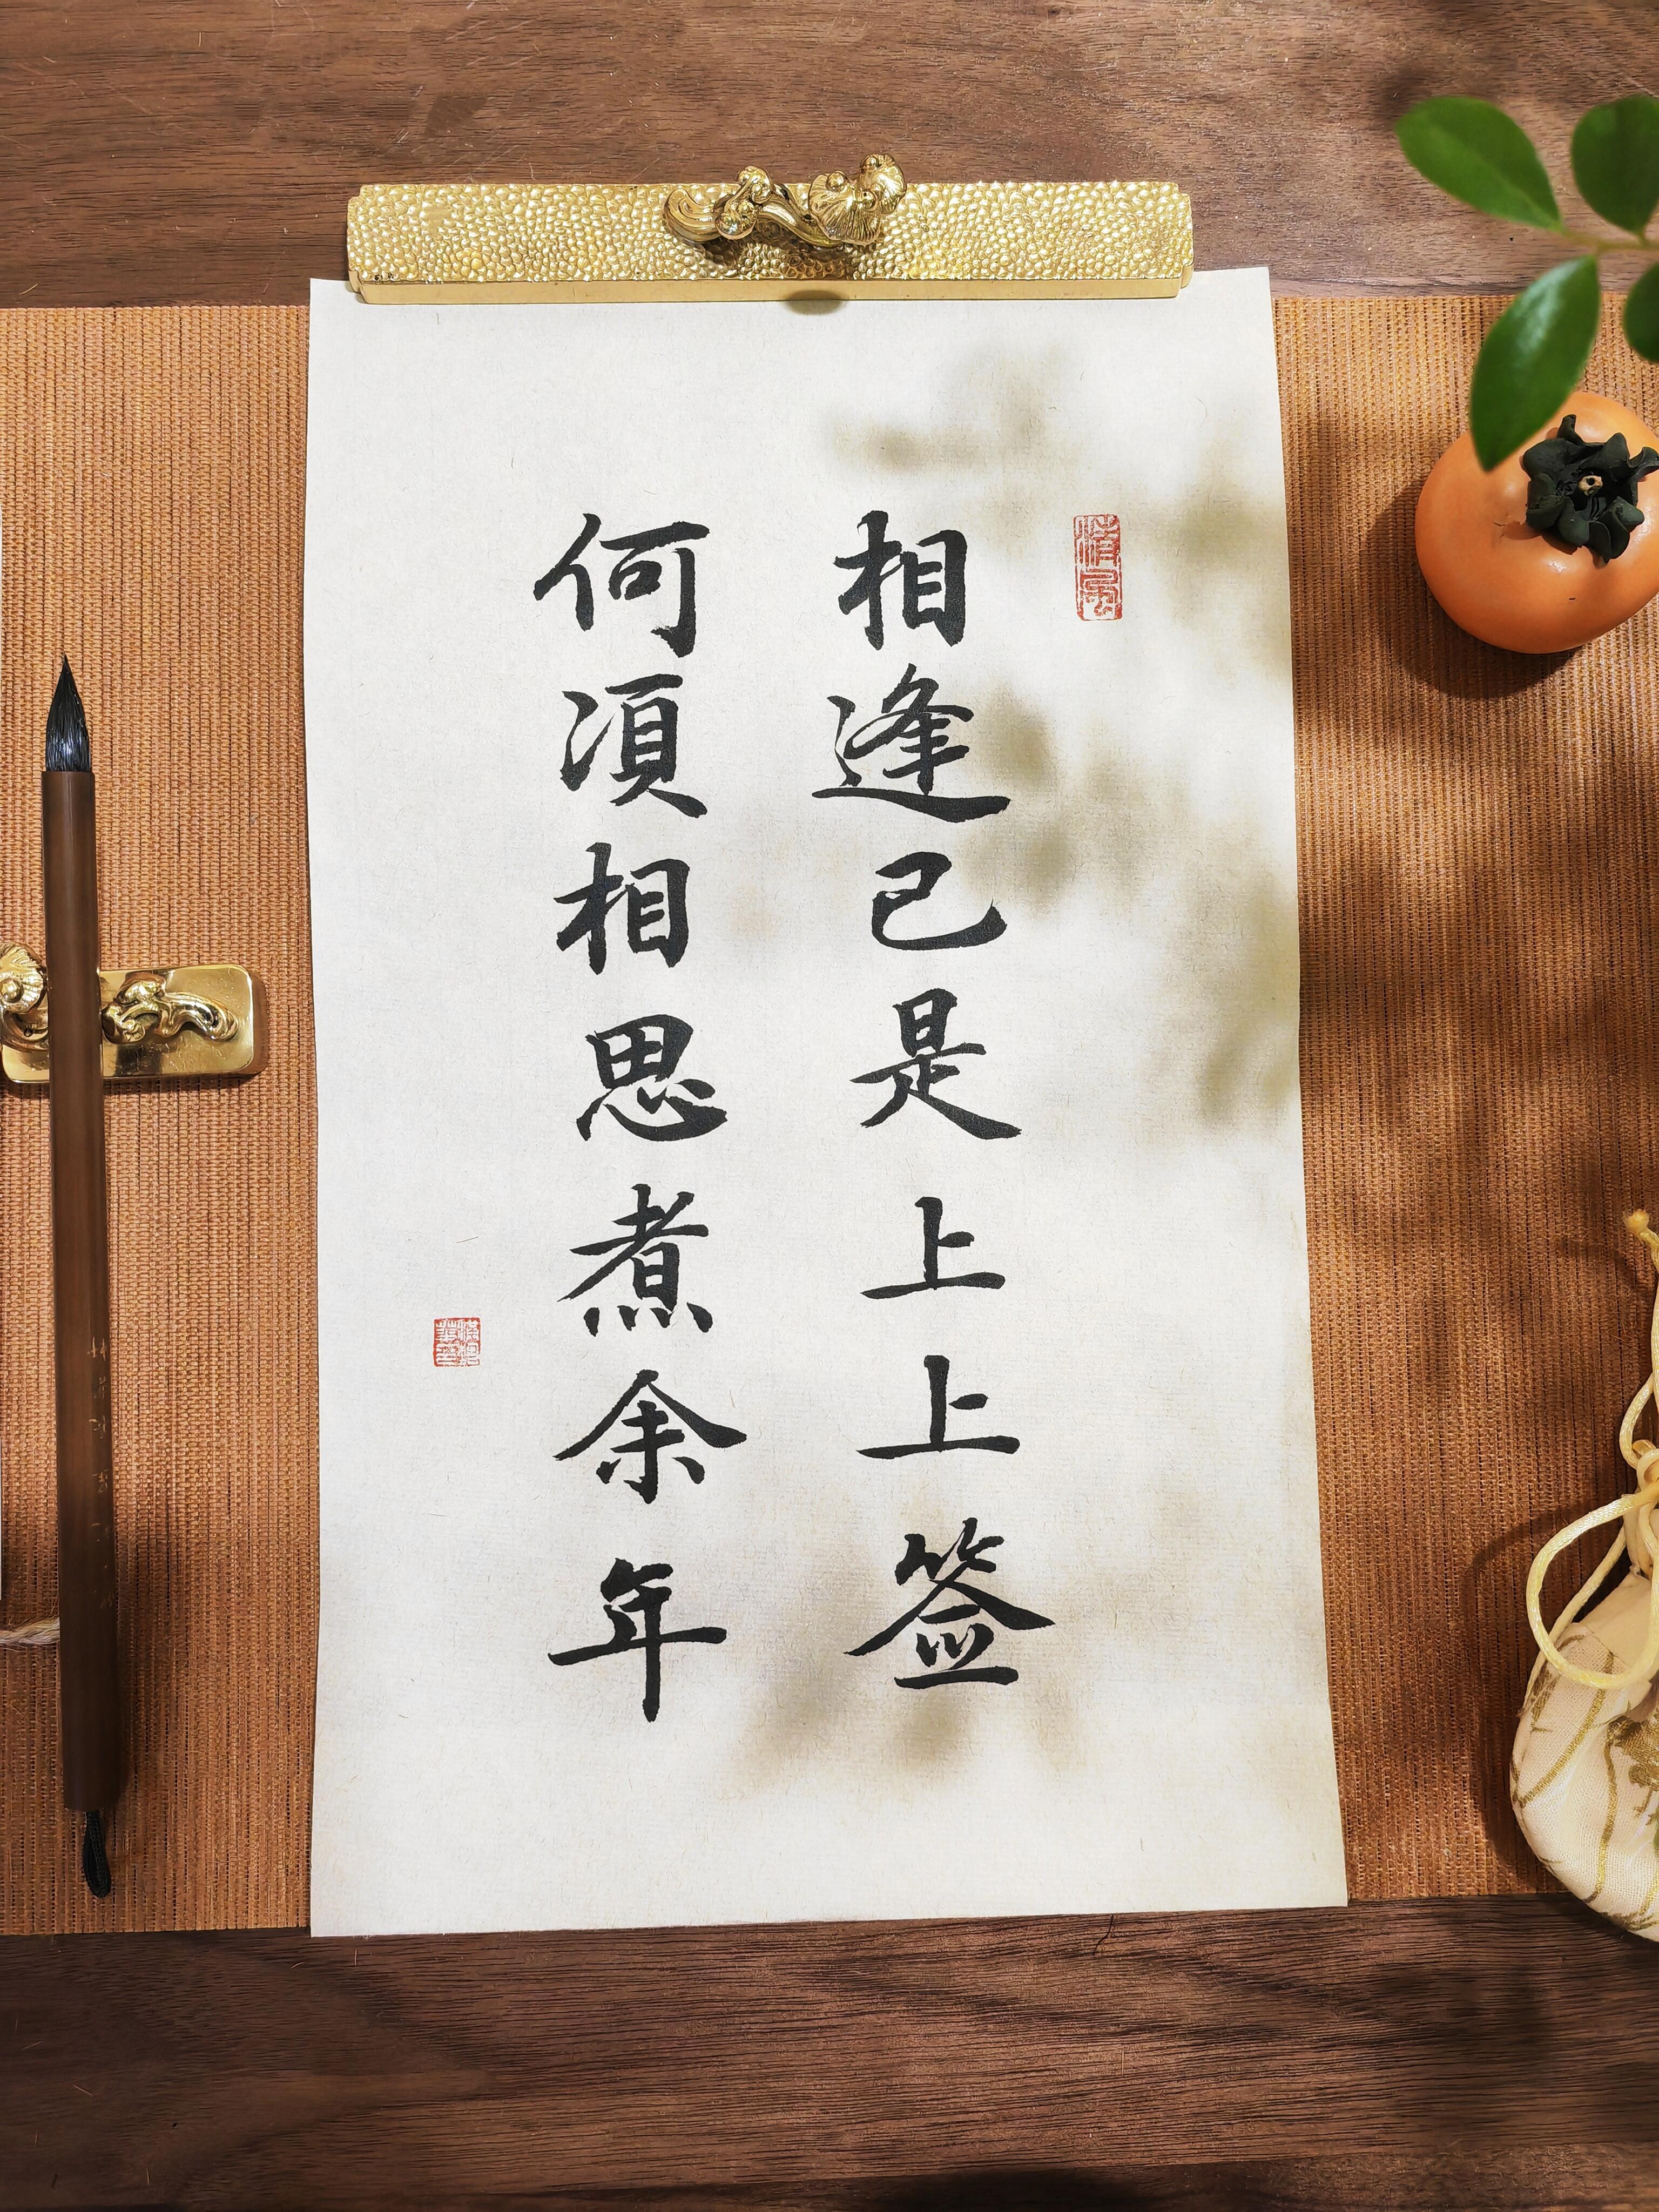 相逢已是上上签
何須相思煮余年
清風